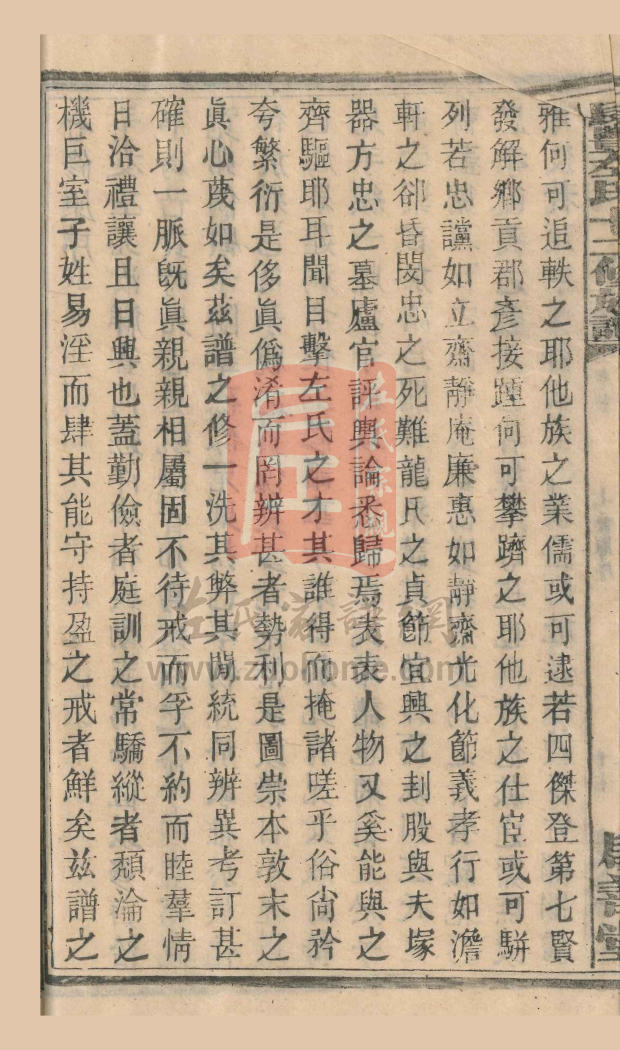 雅何可追軼之耶他族之業儒或可逮若四傑登第七賢
發解鄉貢郡彥接踵何可攀躋之耶他族之仕宦或可駢
列若忠讜如立齋靜庵廉惠如靜齋光化節義孝行如澹
軒之卻昏閔忠之死難龍氏之貞節宜興之刲股與夫塚
器方忠之墓廬官評輿論悉歸焉表表人物又奚能與之
齊驅耶耳聞目擊左氏之才其誰得而掩諸嗟乎俗尙矜
夸繁衍是侈眞僞淆而罔辨甚者勢利是圖崇本敦末之
眞心蔑如矣茲譜之修一洗其弊其閒統同辨異考訂甚
確則一脈旣眞親親相屬固不待戒而孚不約而睦羣情
日洽禮讓且日興也蓋勤儉者庭訓之常驕縱者頹淪之
機巨室子姓易淫而肆其能守持盈之戒者鮮矣茲譜之
左氏家譜網
www.zuohome.com